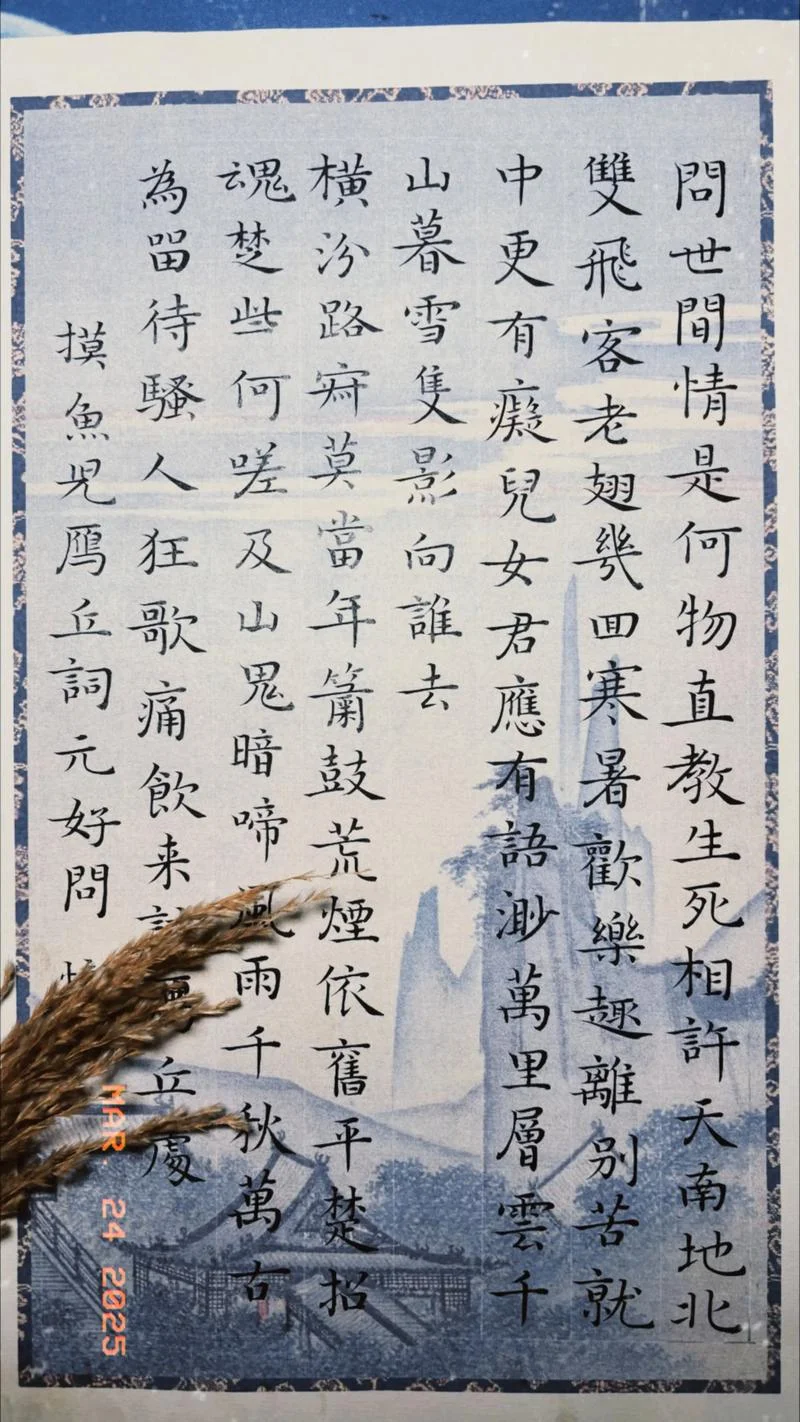 問世間情是何物直教生死相許天南地北
雙飛客老翅幾回寒暑歡樂趣離別苦就
中更有癡兒女君應有語渺萬里層雲千
山暮雪隻影向誰去
橫汾路寂莫當年簫鼓荒煙依舊平楚招
魂楚些何嗟及山鬼暗啼風雨千秋萬古
為留待騷人狂歌痛飲来訪鴈丘處
摸魚兒鴈丘詞元好問
MAR. 24 2025